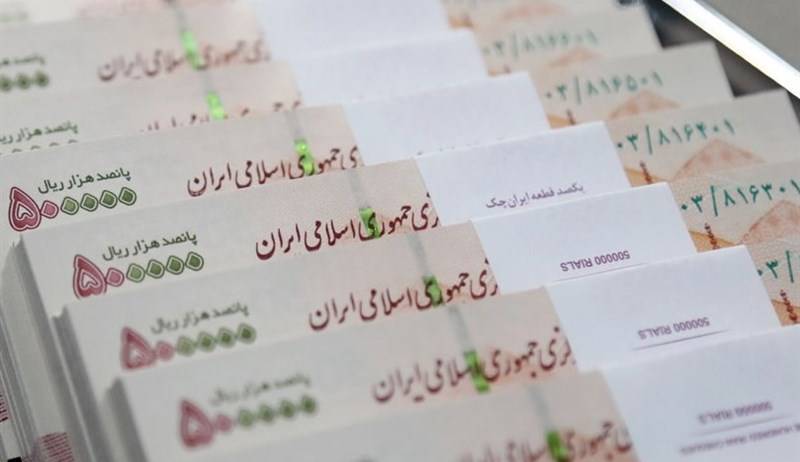 جمهوری اسلامی ایران
۰۳/۸۱۶۶۰۱
پانصد هزار ریال
۰۳/۸۱۶۵۰۱
پانصد هزار ریال
۵۰۰۰۰۰
جمهوری اسلامی ایران
۰۳/۸۱۶۴۰۱
یکصد قطعه ایران چک
پانصد هزار ریال
۵۰۰۰۰۰
جمهوری اسلامی ایران
۰۳/۸۱۶۳۰۱
500000 RIALS
پانصد هزار ریال
۵۰۰۰۰۰
جمهوری اسلامی ایران
500000 RIALS
پانصد هزار ریال
۵۰۰۰۰۰
جمهوری اسلامی ایران
500000 RIALS